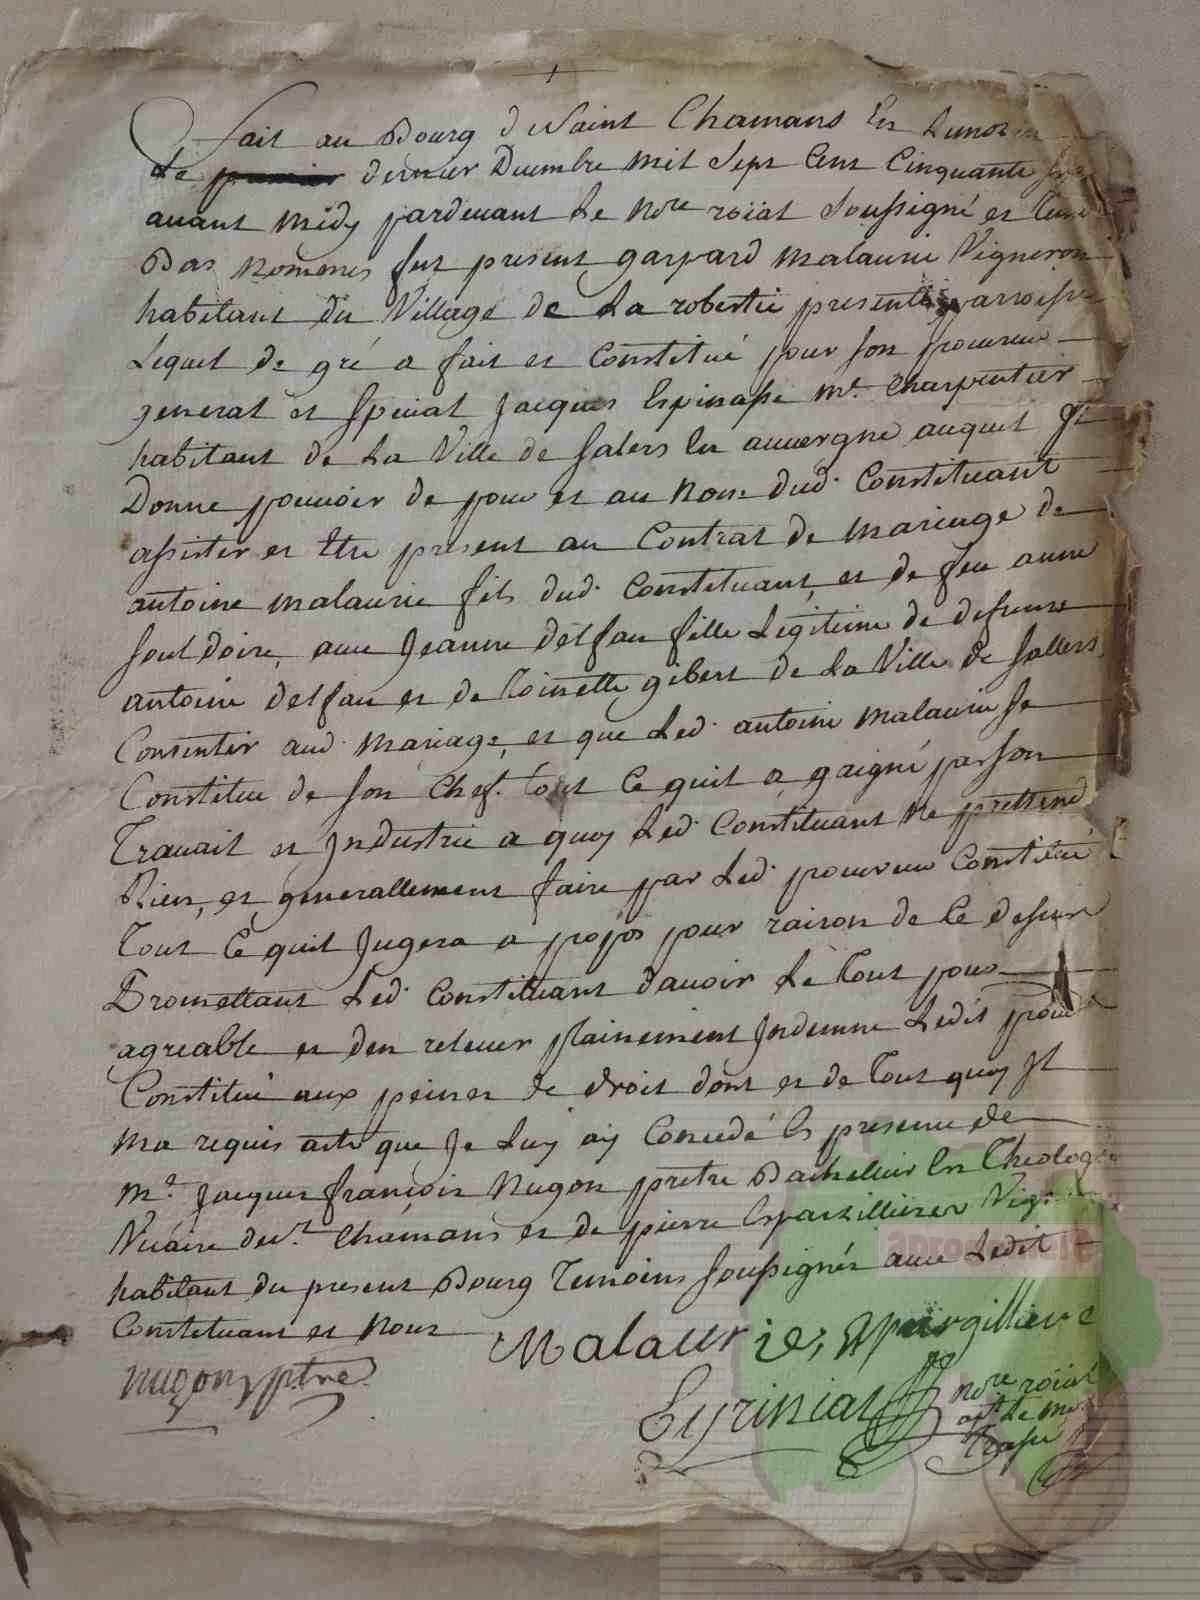 fait au Bourg de Saint Chamans En Limozin
Le premier dernier Decembre mil Sept Cens Cinquante
avant midy pardevant Le Nore roïal Soussigné et temo
Bas nommes fut present gaspard malaurie Vigneron
habitant du Village de La robertie presente parroisse
Lequel de gré a fait et Constitué pour son procureur
general et special Jacques Espinasse me. charpentier
habitant de La Ville de Salers En auvergne auquel Il
Donne pouvoir de pour et au nom dud. Constituant
assister et Etre present au Contrat de mariage de
antoine malaurie fils dud. Constituant, et de feu anne
Souldoire, avec Jeanne delfau fille Legitime de defunts
antoine delfau et de Toinette gibert de La Ville de Sallers,
Consentir aud. mariage, et que Led. antoine malaurie Se
Constitue de son Chef. tout Ce quil a gaigné par son
Travail et Industrie a quoy Led. Constituant ne prettend
Rien, et generallement faire par Led. procureur Constitué
Tout Ce quil Jugera a propos pour raison de Ce dessus
Promettant Led. Constituant d'avoir Le Tout pour
agreable et den relever plainement Indemne Ledit procur
Constitué aux peines de droit dont et de Tout quoy Il
ma requis acte que Je Luy aÿ Concedé Es presence de
me. Jacques françois Nugon pretre Bachellier En Theologie
Vicaire de St. Chamans et de pierre Esparzillierer Vig.
habitant du present Bourg Temoins Soussignés avec Ledit
Constituant et Nous
Malaurie, Esparzilliere
nugon ptre
Eyriniat nore roïal
apt. Le mot
Trassé
aprogemere